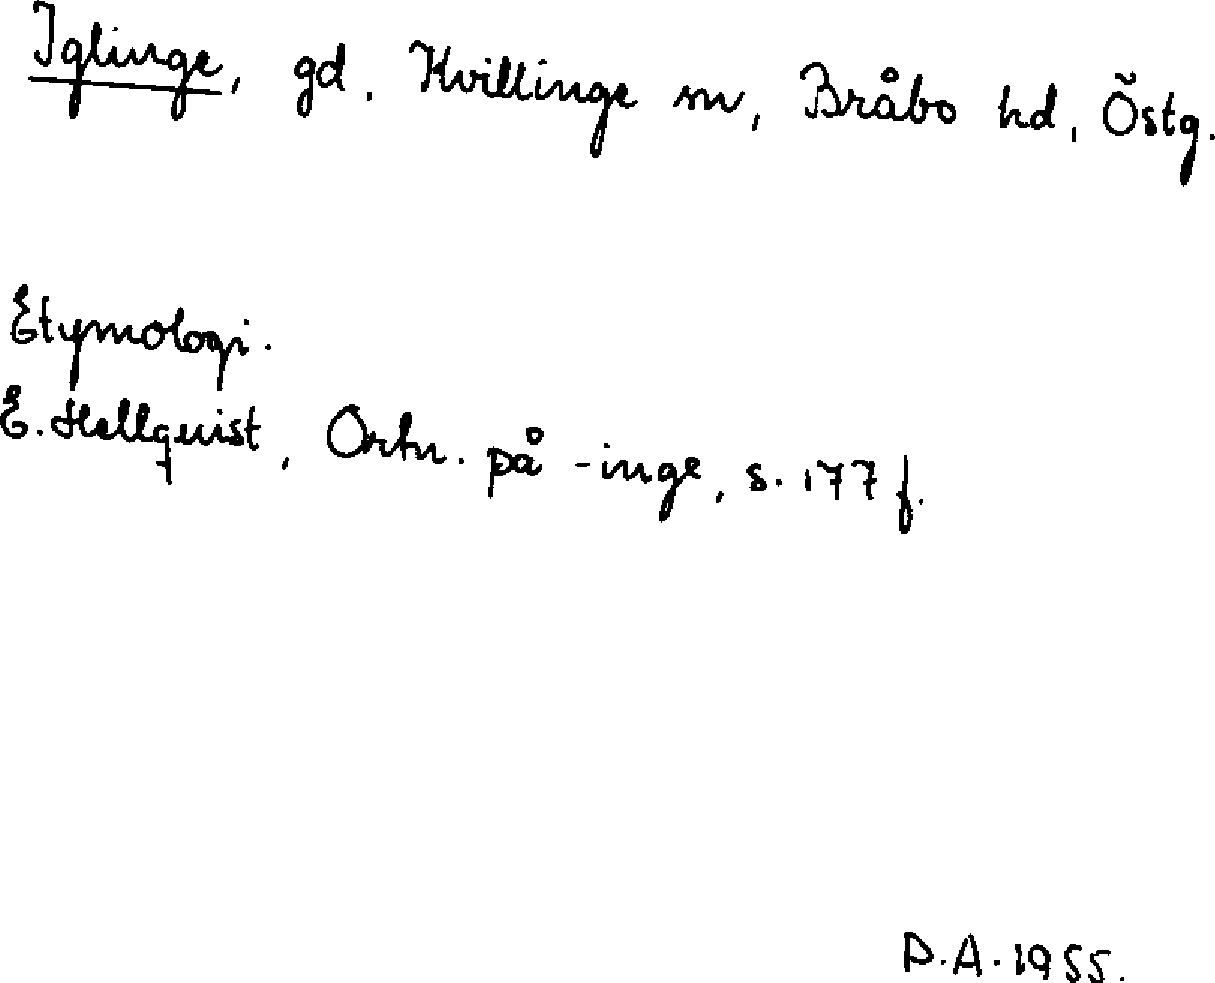 Iglinge, gd, Kvillinge sn, Bråbo hd, Östg.
Etymologi.
E. Hellquist, Ortn. på -inge, s. 177 f.
D.A. 1955.